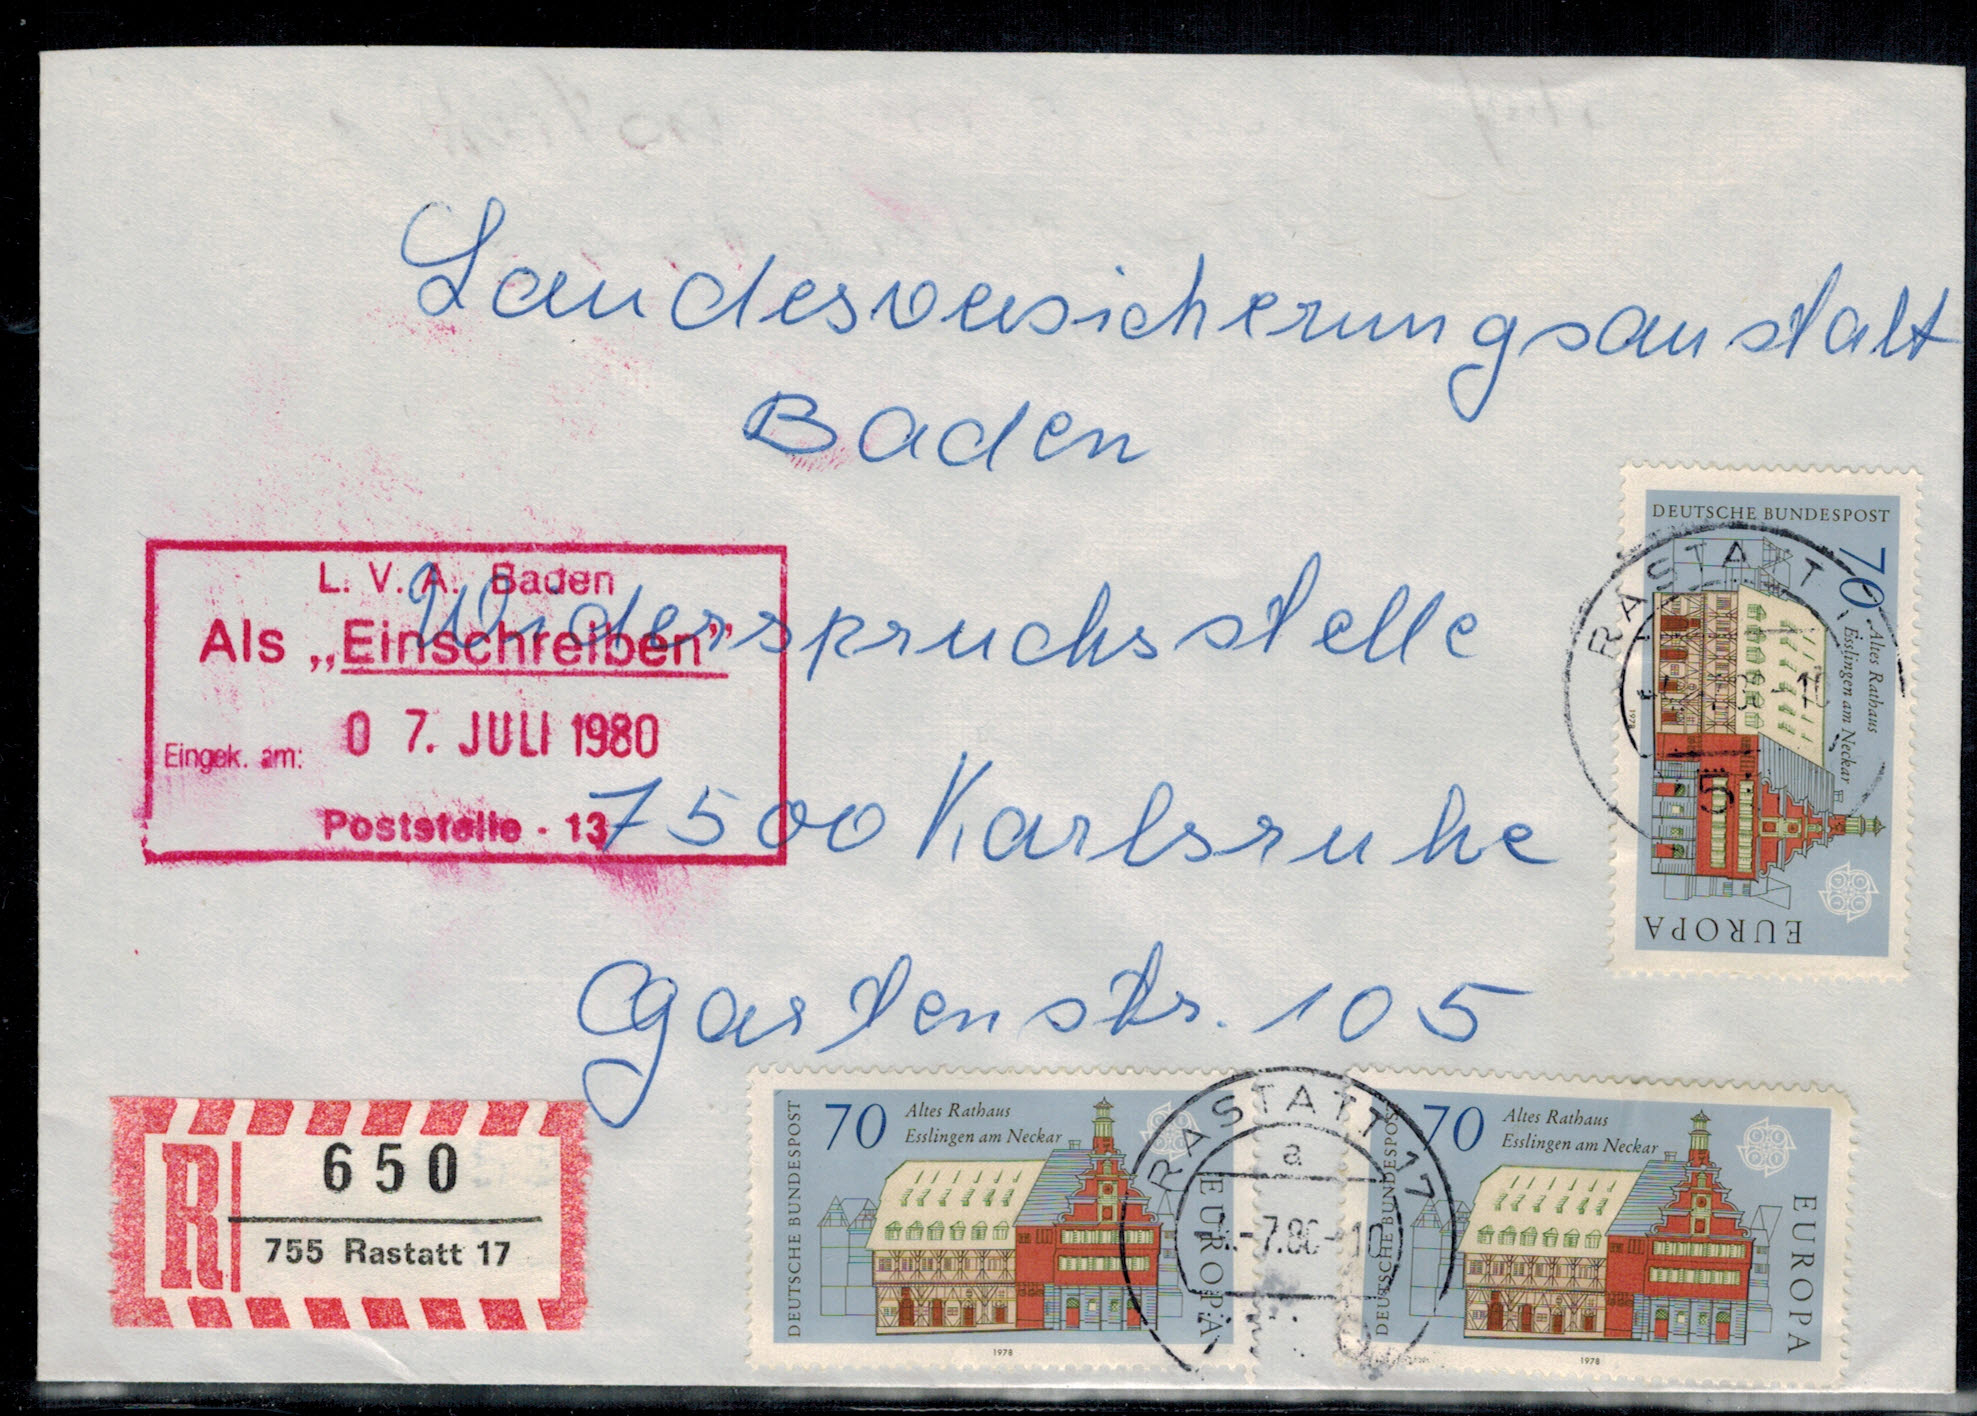 Landesversicherungsanstalt
Baden
L. V. A. Baden
Als „Einschreiben”
Eingek. am: 0 7. JULI 1980
Poststelle - 13
Widerspruchsstelle
7500 Karlsruhe
Gartenstr. 105
DEUTSCHE BUNDESPOST
70
Altes Rathaus
Esslingen am Neckar
1978
EUROPA
RASTATT
R
650
755 Rastatt 17
DEUTSCHE BUNDESPOST
70
Altes Rathaus
Esslingen am Neckar
EUROPA
1978
RASTATT 17
a
DEUTSCHE BUNDESPOST
70
Altes Rathaus
Esslingen am Neckar
EUROPA
1978